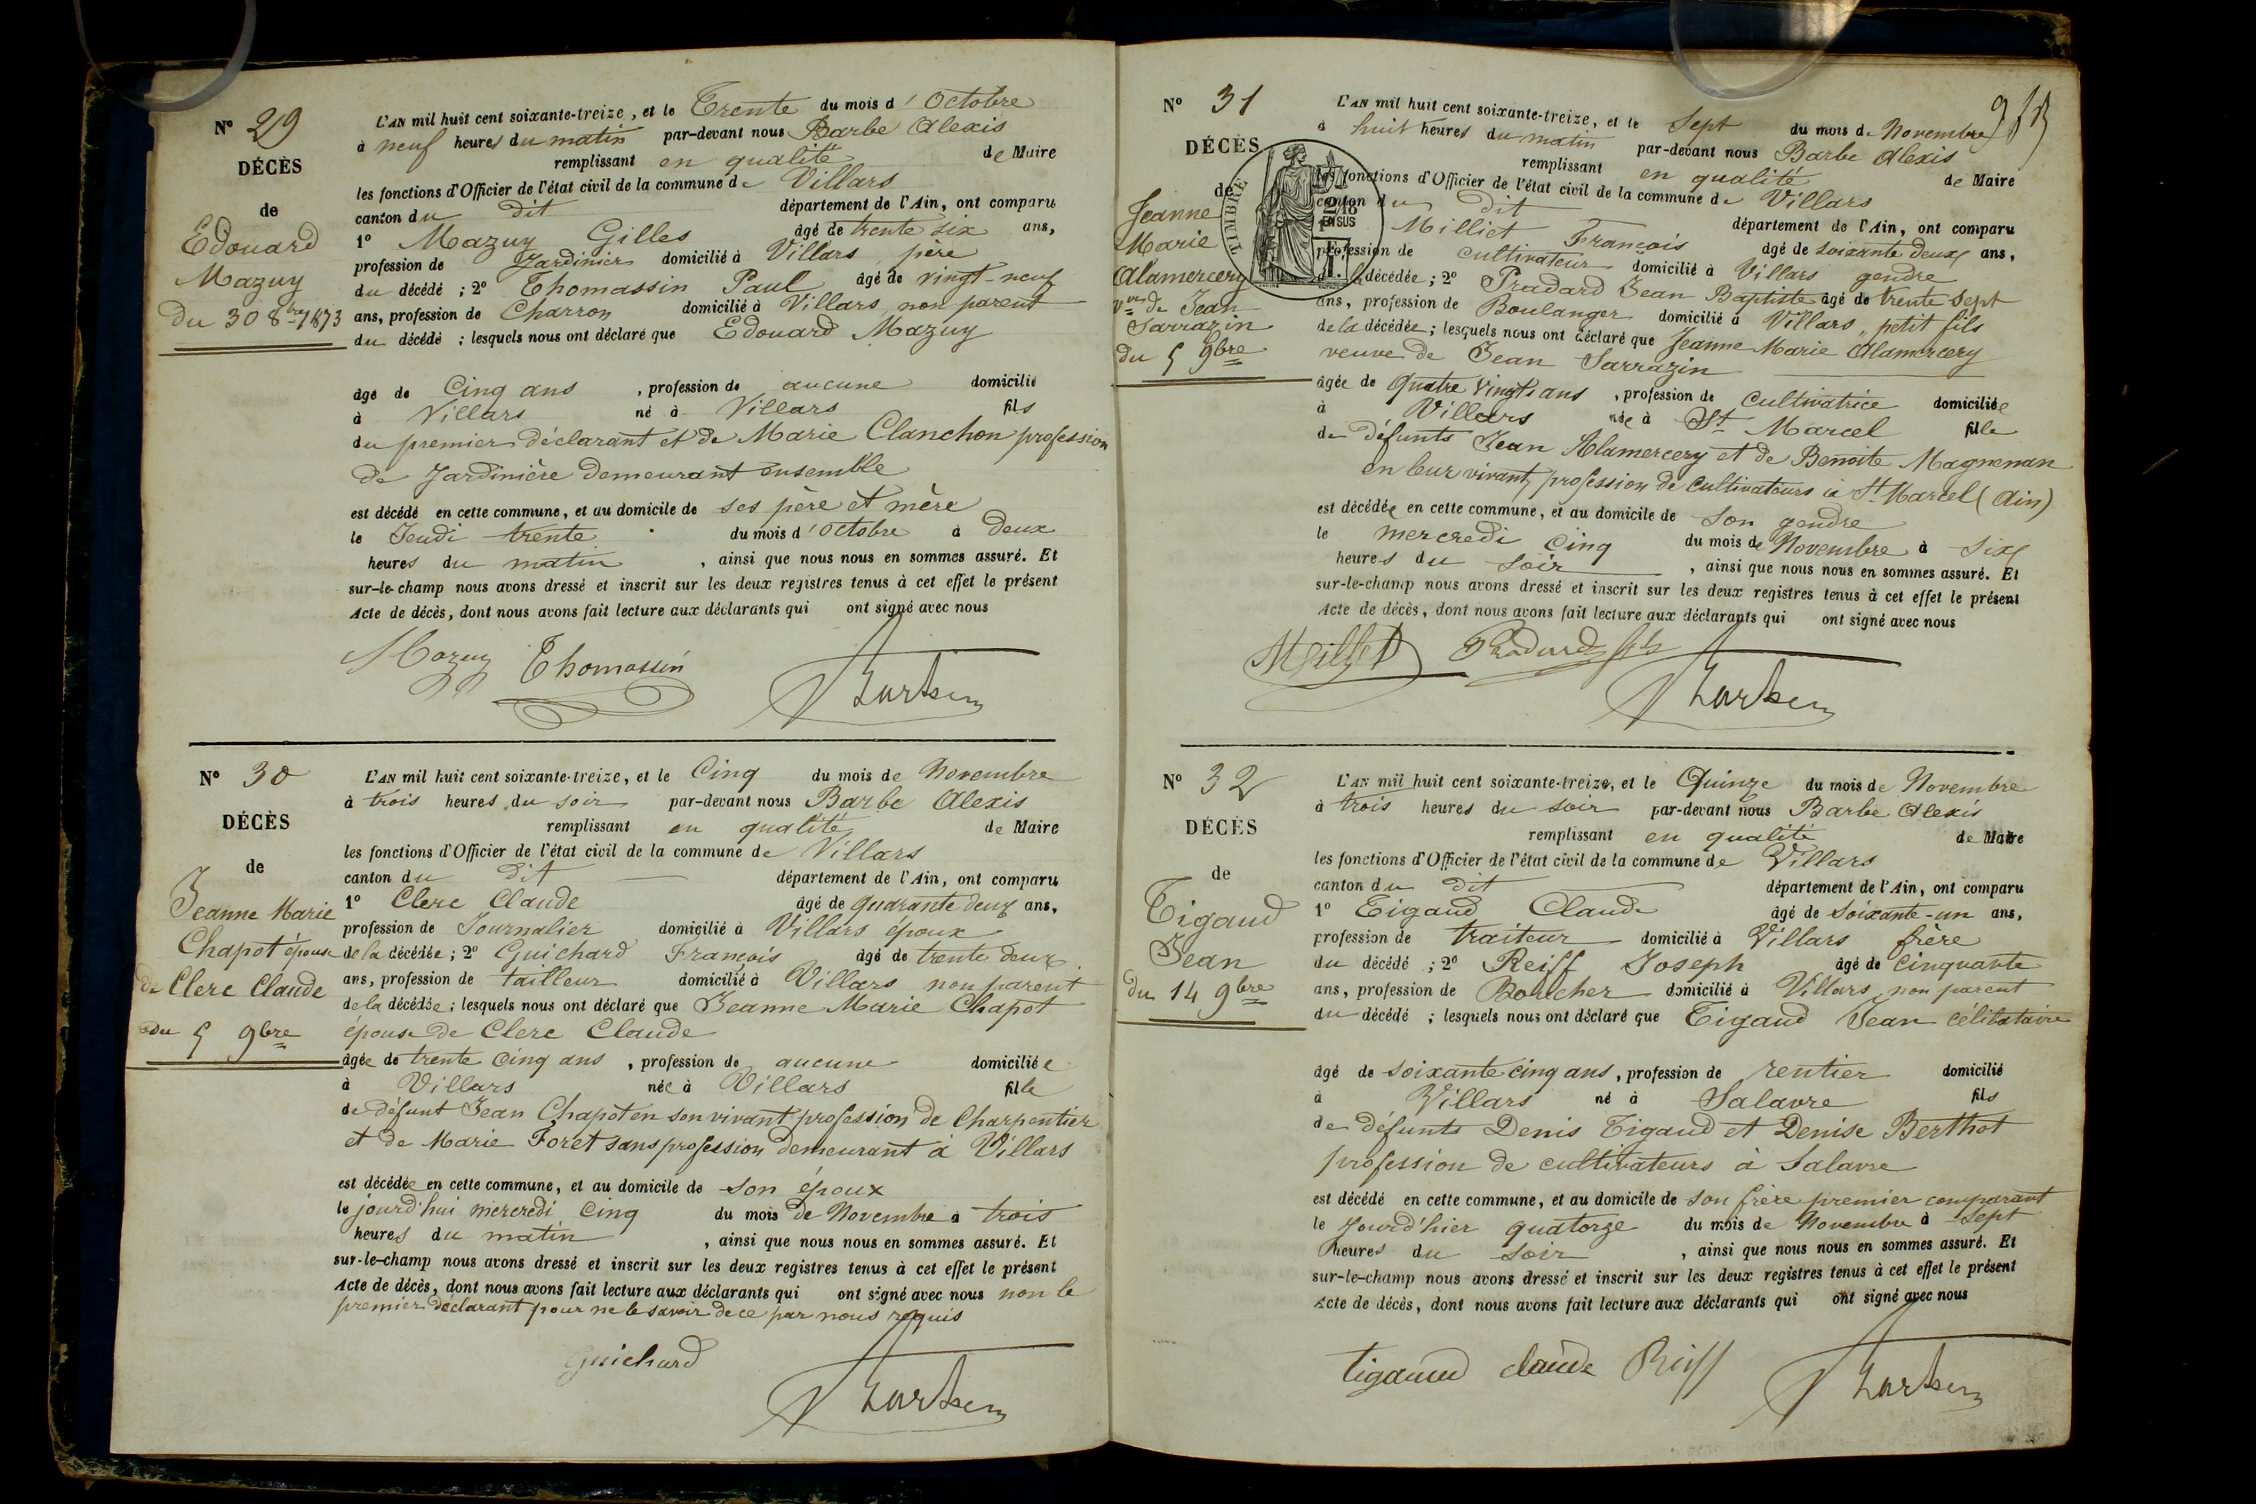 N° 29
DÉCÈS
de
Edouard
Mazuy
du 30 8bre 1873
L'AN mil huit cent soixante-treize, et le Trente du mois d'Octobre
à neuf heures du matin par-devant nous Barbe Alexis
remplissant en qualité de Maire
les fonctions d'Officier de l'état civil de la commune de Villars
canton du dit département de l'Ain, ont comparu
1° Mazuy Gilles âgé de trente six ans,
profession de Jardinier domicilié à Villars père
du décédé ; 2° Thomassin Paul âgé de vingt-neuf
ans, profession de Charron domicilié à Villars non parent
du décédé ; lesquels nous ont déclaré que Edouard Mazuy
âgé de Cinq ans , profession de aucune domicilié
à Villars né à Villars fils
du premier déclarant et de Marie Clanchon profession
de Jardinière demeurant ensemble
est décédé en cette commune, et au domicile de ses père et mère
le Jeudi trente du mois d'Octobre à deux
heures du matin , ainsi que nous nous en sommes assuré. Et
sur-le-champ nous avons dressé et inscrit sur les deux registres tenus à cet effet le présent
Acte de décès, dont nous avons fait lecture aux déclarants qui ont signé avec nous
Mazuy Thomassin
N° 30
DÉCÈS
de
Jeanne Marie
Chapot épouse
de Clerc Claude
du 5 9bre
L'AN mil huit cent soixante-treize, et le Cinq du mois de Novembre
à trois heures du soir par-devant nous Barbe Alexis
remplissant en qualité de Maire
les fonctions d'Officier de l'état civil de la commune de Villars
canton du dit département de l'Ain, ont comparu
1° Clerc Claude âgé de quarante deux ans,
profession de Journalier domicilié à Villars époux
de la décédée ; 2° Guichard François âgé de trente deux
ans, profession de tailleur domicilié à Villars non parent
de la décédée ; lesquels nous ont déclaré que Jeanne Marie Chapot
épouse de Clerc Claude
âgée de trente cinq ans , profession de aucune domiciliée
à Villars née à Villars fille
de défunt Jean Chapot en son vivant profession de Charpentier
et de Marie Foret sans profession demeurant à Villars
est décédée en cette commune, et au domicile de son époux
le jourd'hui mercredi cinq du mois de Novembre à trois
heures du matin , ainsi que nous nous en sommes assuré. Et
sur-le-champ nous avons dressé et inscrit sur les deux registres tenus à cet effet le présent
Acte de décès, dont nous avons fait lecture aux déclarants qui ont signé avec nous non le
premier déclarant pour ne le savoir de ce par nous requis
Guichard
N° 31
DÉCÈS
de
Jeanne
Marie
Alamercery
vve de Jean
Sarrazin
du 5 9bre
TIMBRE
L'AN mil huit cent soixante-treize, et le Sept du mois de Novembre
à huit heures du matin par-devant nous Barbe Alexis
remplissant en qualité de Maire
les fonctions d'Officier de l'état civil de la commune de Villars
canton du dit département de l'Ain, ont comparu
Milliet François âgé de soixante deux ans,
profession de cultivateur domicilié à Villars gendre
de la décédée ; 2° Pradard Jean Baptiste âgé de trente sept
ans, profession de Boulanger domicilié à Villars, petit fils
de la décédée ; lesquels nous ont déclaré que Jeanne Marie Alamercery
veuve de Jean Sarrazin
âgée de quatre vingts ans , profession de cultivatrice domiciliée
à Villars née à St Marcel fille
de défunts Jean Alamercery et de Benoite Magnenan
en leur vivant, profession de cultivateurs à St Marcel (Ain)
est décédée en cette commune, et au domicile de son gendre
le mercredi cinq du mois de Novembre à six
heures du soir , ainsi que nous nous en sommes assuré. Et
sur-le-champ nous avons dressé et inscrit sur les deux registres tenus à cet effet le présent
Acte de décès, dont nous avons fait lecture aux déclarants qui ont signé avec nous
Milliet Pradard fils
N° 32
DÉCÈS
de
Tigaud
Jean
du 14 9bre
L'AN mil huit cent soixante-treize, et le Quinze du mois de Novembre
à trois heures du soir par-devant nous Barbe Alexis
remplissant en qualité de Maire
les fonctions d'Officier de l'état civil de la commune de Villars
canton du dit département de l'Ain, ont comparu
1° Tigaud Claude âgé de soixante-un ans,
profession de traiteur domicilié à Villars frère
du décédé ; 2° Reiff Joseph âgé de cinquante
ans, profession de Boucher domicilié à Villars, non parent
du décédé ; lesquels nous ont déclaré que Tigaud Jean célibataire
âgé de soixante cinq ans, profession de rentier domicilié
à Villars né à Salavre fils
de défunts Denis Tigaud et Denise Berthot
profession de cultivateurs à Salavre
est décédé en cette commune, et au domicile de son frère premier comparant
le Jourd'hier quatorze du mois de Novembre à sept
heures du soir , ainsi que nous nous en sommes assuré. Et
sur-le-champ nous avons dressé et inscrit sur les deux registres tenus à cet effet le présent
Acte de décès, dont nous avons fait lecture aux déclarants qui ont signé avec nous
tigaud claude Reiff